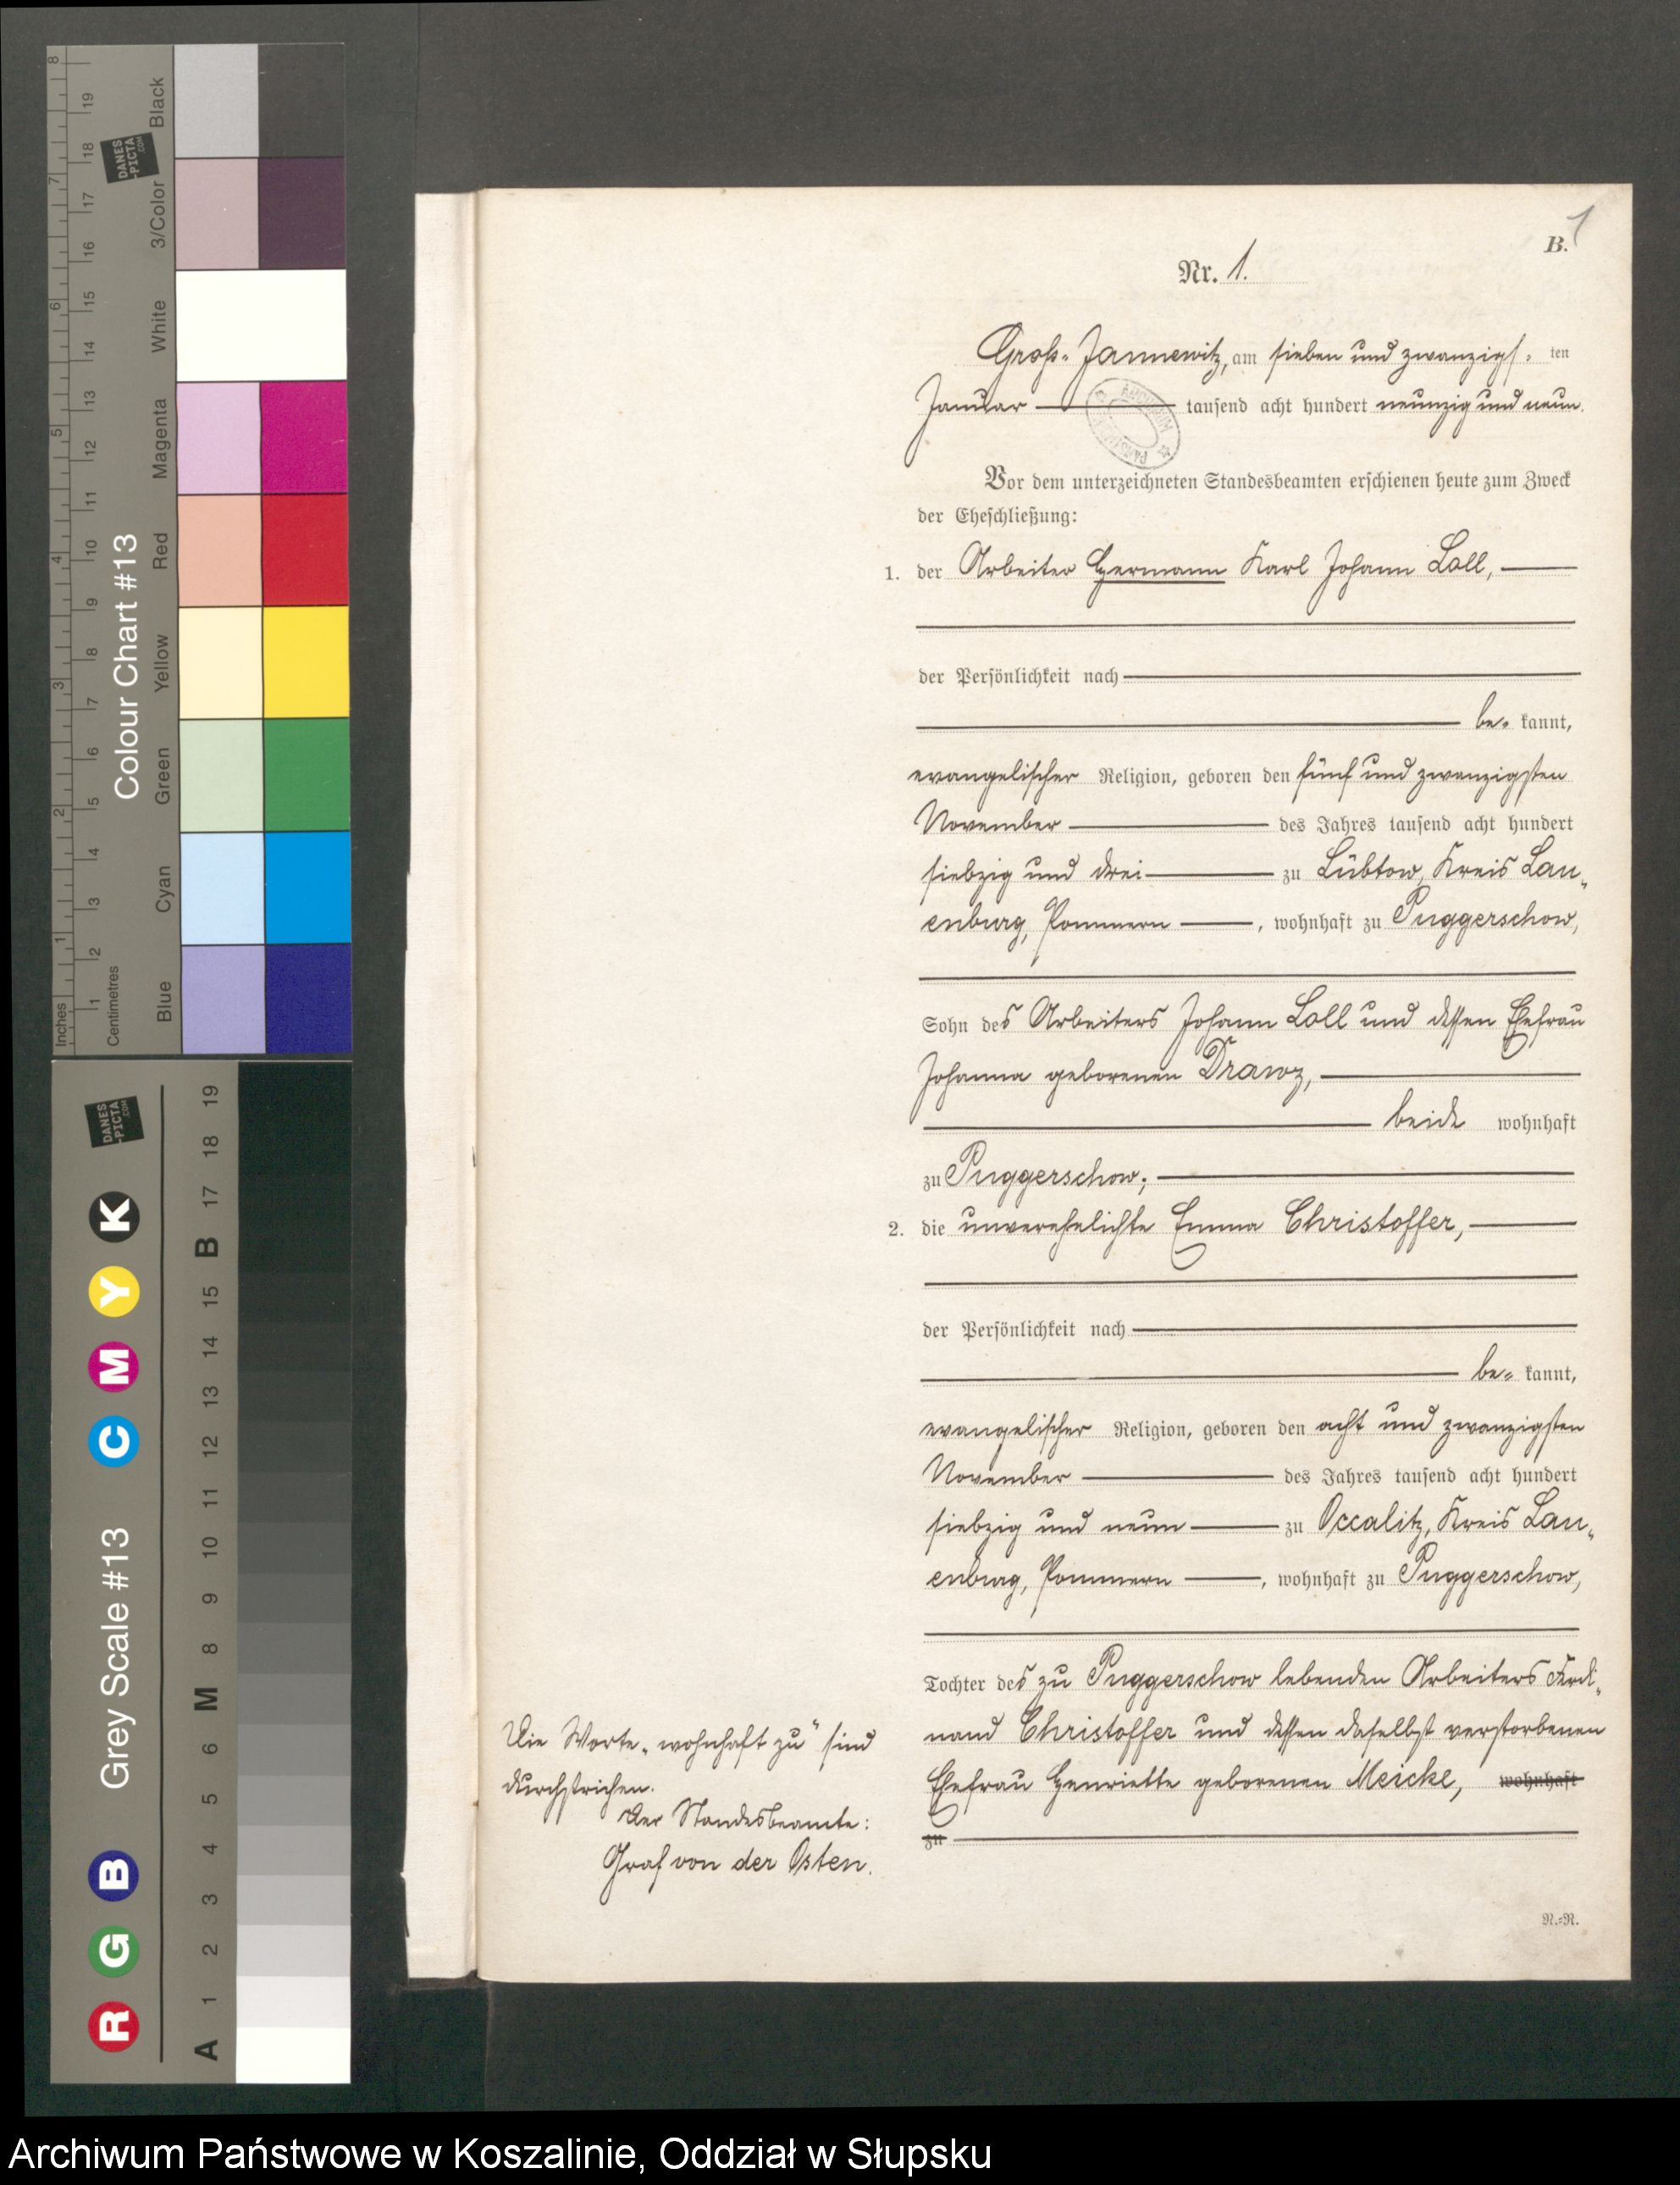 B. 1
Nr. 1.
Groß-Jannewitz, am sieben und zwanzigs-ten
Januar tausend acht hundert neunzig und neun.
Vor dem unterzeichneten Standesbeamten erschienen heute zum Zweck
der Eheschließung:
1. der Arbeiter Hermann Karl Johann Loll,
der Persönlichkeit nach
be- kannt,
evangelischer Religion, geboren den fünf und zwanzigsten
November des Jahres tausend acht hundert
siebzig und drei zu Lübtow, Kreis Lau-
enburg, Pommern, wohnhaft zu Puggerschow,
Sohn des Arbeiters Johann Loll und dessen Ehefrau
Johanna geborenen Drawz,
beide wohnhaft
zu Puggerschow;
2. die unverehelichte Emma Christoffer,
der Persönlichkeit nach
be- kannt,
evangelischer Religion, geboren den acht und zwanzigsten
November des Jahres tausend acht hundert
siebzig und neun zu Occalitz, Kreis Lau-
enburg, Pommern, wohnhaft zu Puggerschow,
Tochter des zu Puggerschow lebenden Arbeiters Ferdi-
nand Christoffer und dessen daselbst verstorbenen
Ehefrau Henriette geborenen Meicke, wohnhaft
zu
Die Worte „wohnhaft zu" sind
durchstrichen.
Der Standesbeamte:
Graf von der Osten.
R.-R.
Colour Chart #13
Blue Cyan Green Yellow Red Magenta White 3/Color Black
Inches 1 2 3 4 5 6 7 8
Centimetres 1 2 3 4 5 6 7 8 9 10 11 12 13 14 15 16 17 18 19
DANES
-PICTA
.COM
Grey Scale #13
R G B C M Y K
A 1 2 3 4 5 6 M 8 9 10 11 12 13 14 15 B 17 18 19
DANES
-PICTA
.COM
Archiwum Państwowe w Koszalinie, Oddział w Słupsku